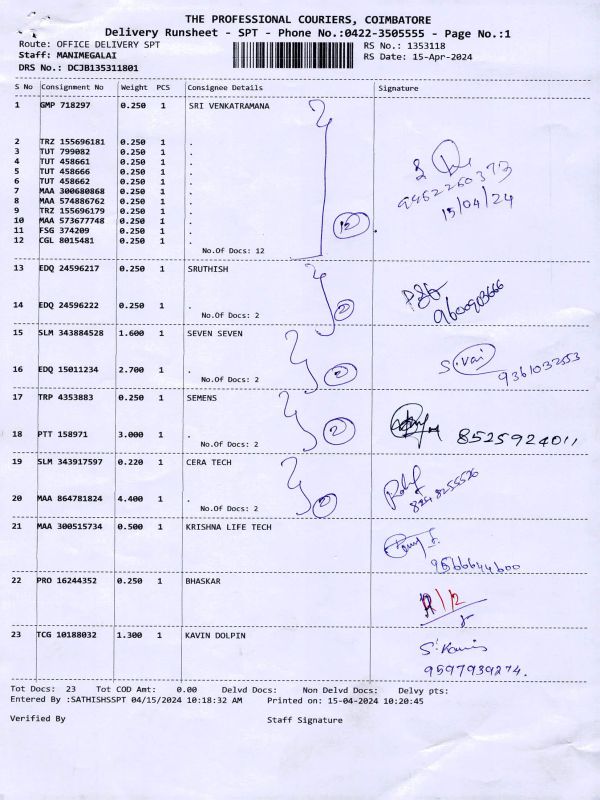 THE PROFESSIONAL COURIERS, COIMBATORE
Delivery Runsheet - SPT - Phone No.:0422-3505555 - Page No.:1
Route: OFFICE DELIVERY SPT RS No.: 1353118
Staff: MANIMEGALAI RS Date: 15-Apr-2024
DRS No.: DCJB135311801
S No Consignment No Weight PCS Consignee Details Signature
1 GMP 718297 0.250 1 SRI VENKATRAMANA
2 TRZ 155696181 0.250 1 .
3 TUT 799082 0.250 1 .
4 TUT 458661 0.250 1 .
5 TUT 458666 0.250 1 .
6 TUT 458662 0.250 1 .
7 MAA 300680868 0.250 1 .
8 MAA 574886762 0.250 1 .
9 TRZ 155696179 0.250 1 .
10 MAA 573677748 0.250 1 .
11 FSG 374209 0.250 1 .
12 CGL 8015481 0.250 1 .
No.Of Docs: 12
12
9452260373
15/04/24
13 EDQ 24596217 0.250 1 SRUTHISH
14 EDQ 24596222 0.250 1 .
No.Of Docs: 2
2
15 SLM 343884528 1.600 1 SEVEN SEVEN
16 EDQ 15011234 2.700 1 .
No.Of Docs: 2
2
S.vai
9361032553
17 TRP 4353883 0.250 1 SEMENS
18 PTT 158971 3.000 1 .
No.Of Docs: 2
2
8525924011
19 SLM 343917597 0.220 1 CERA TECH
20 MAA 864781824 4.400 1 .
No.Of Docs: 2
2
21 MAA 300515734 0.500 1 KRISHNA LIFE TECH
9566644600
22 PRO 16244352 0.250 1 BHASKAR
23 TCG 10188032 1.300 1 KAVIN DOLPIN
9597939274.
Tot Docs: 23 Tot COD Amt: 0.00 Delvd Docs: Non Delvd Docs: Delvy pts:
Entered By :SATHISHSSPT 04/15/2024 10:18:32 AM Printed on: 15-04-2024 10:20:45
Verified By Staff Signature